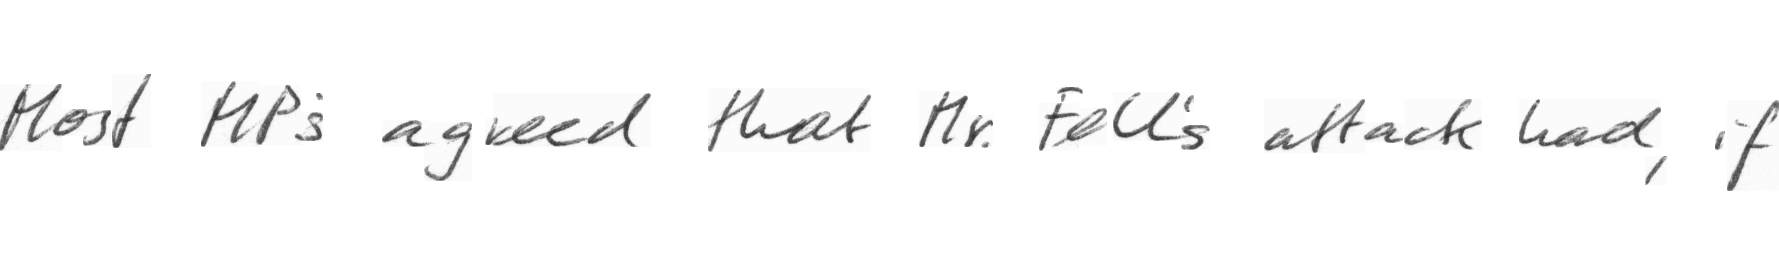 Most MP's agreed that Mr. Fell's attack had, if